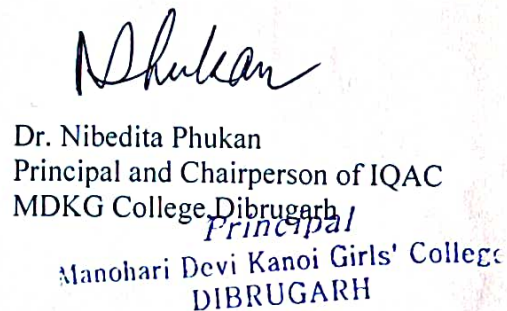 NPhukan
Dr. Nibedita Phukan
Principal and Chairperson of IQAC
MDKG College, Dibrugarh
Principal
Manohari Devi Kanoi Girls' College
DIBRUGARH